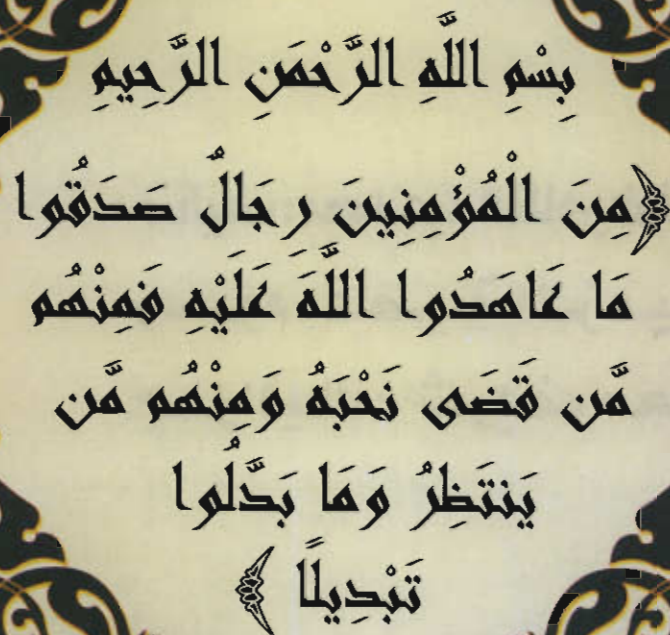 بِسْمِ اللَّهِ الرَّحْمَنِ الرَّحِيمِ
﴿مِنَ الْمُؤْمِنِينَ رِجَالٌ صَدَقُوا
مَا عَاهَدُوا اللَّهَ عَلَيْهِ فَمِنْهُم
مَّن قَضَى نَحْبَهُ وَمِنْهُم مَّن
يَنتَظِرُ وَمَا بَدَّلُوا
تَبْدِيلًا﴾